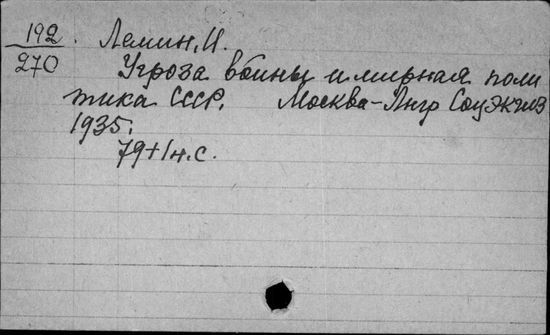 192
270
Лемин, И.
Угроза войны и мирная поли
тика СССР. Москва-Лнгр Соцэкгиз
1935.
79+1н.с.